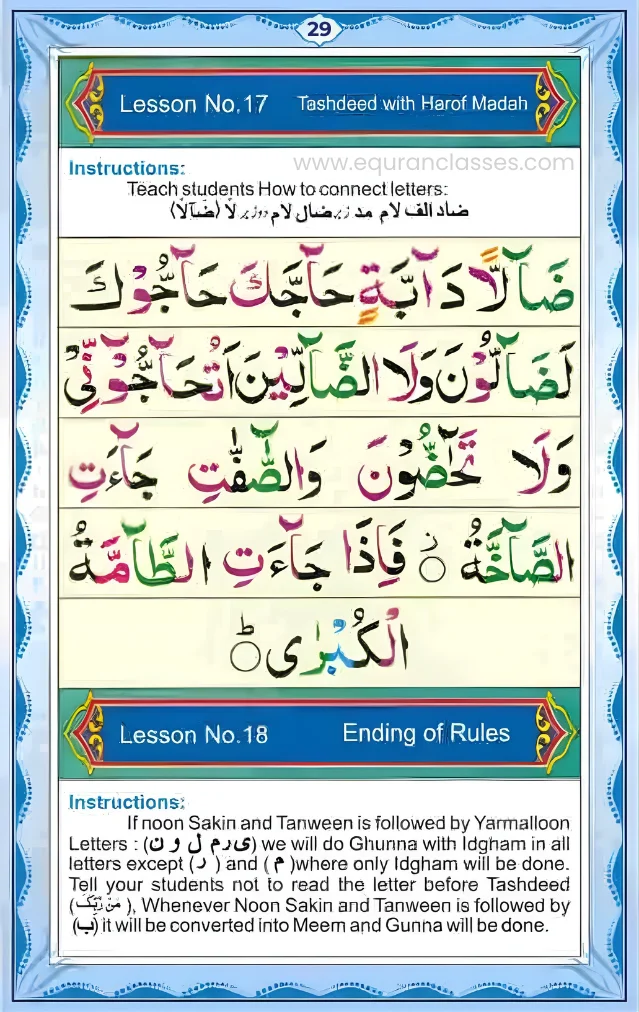 29
Lesson No.17 Tashdeed with Harof Madah
www.equranclasses.com
Instructions:
Teach students How to connect letters:
ضاد الف لام مد زبر ضال لام دو زبر لاً (ضَآلًّا)
ضَآلًّا دَآبَّةٍ حَآجَّكَ حَآجُّوْكَ
لَضَآلُّوْنَ وَلَا الضَّآلِّيْنَ اَتُحَآجُّوْٓنِّىْ
وَلَا تَحٰٓضُّوْنَ وَالصّٰٓفّٰتِ جَآءَتِ
الصَّآخَّةُ فَاِذَا جَآءَتِ الطَّآمَّةُ
الْكُبْرٰى
Lesson No.18 Ending of Rules
Instructions:
If noon Sakin and Tanween is followed by Yarmalloon
Letters : (ی ر م ل و ن) we will do Ghunna with Idgham in all
letters except ( ر ) and ( م )where only Idgham will be done.
Tell your students not to read the letter before Tashdeed
(مَنْ رَّبُّكَ ), Whenever Noon Sakin and Tanween is followed by
(ب) it will be converted into Meem and Gunna will be done.